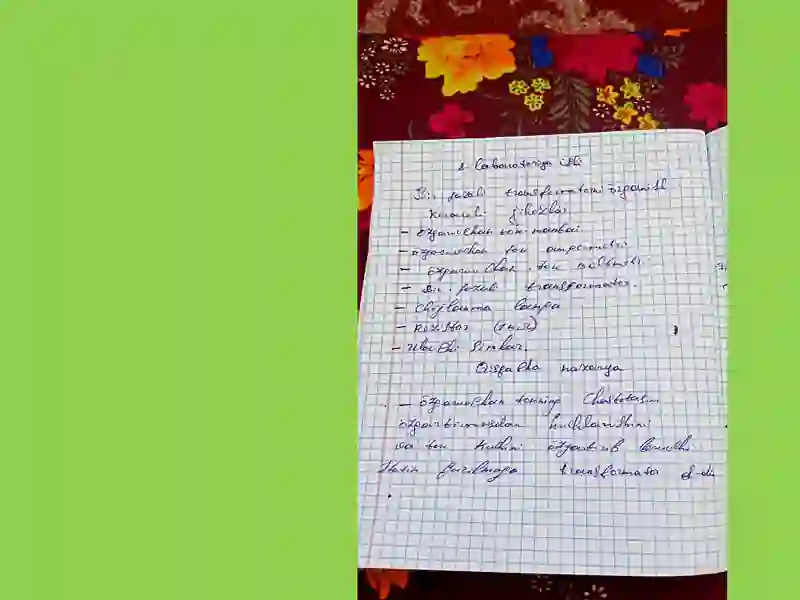 1- Laboratoriya ishi
Bir fazali transformatorni o'rganish
Kerakli jihozlar
- o'zgaruvchan tok manbai
- o'zgaruvchan tok ampermetri
- o'zgaruvchan tok voltmetri
- Bir fazali transformator.
- Cho'g'lanma lampa
- Rezistor
- Ulovchi simlar
Qisqacha nazariya
- o'zgaruvchan tokning chastotasini
o'zgartirmasdan kuchlanishini
va tok kuchini o'zgartirib beruvchi
Statik qurilmaga transformator